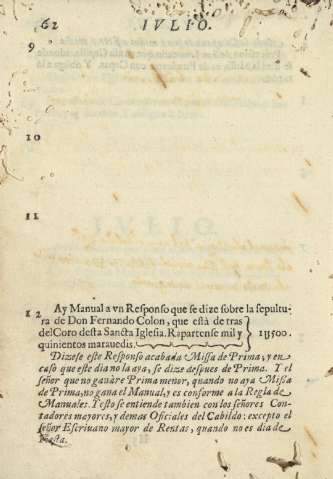 62 IVLIO.
9
10
11
12 Ay Manual a vn Responso que se dize sobre la sepultu-
ra de Don Fernando Colon, que està de tras
del Coro desta Sancta Iglesia. Rapartense mil y
quinientos marauedis. 1U500.
Dizese este Responso acabada Missa de Prima, y en
caso que este dia no la aya, se dize despues de Prima. Y el
señor que no ganàre Prima menor, quando no aya Missa
de Prima, no gana el Manual, y es conforme a la Regla de
Manuales. Y esto se entiende tambien con los señores Con-
tadores mayores, y demas Oficiales del Cabildo: excepto el
señor Escriuano mayor de Rentas, quando no es dia de